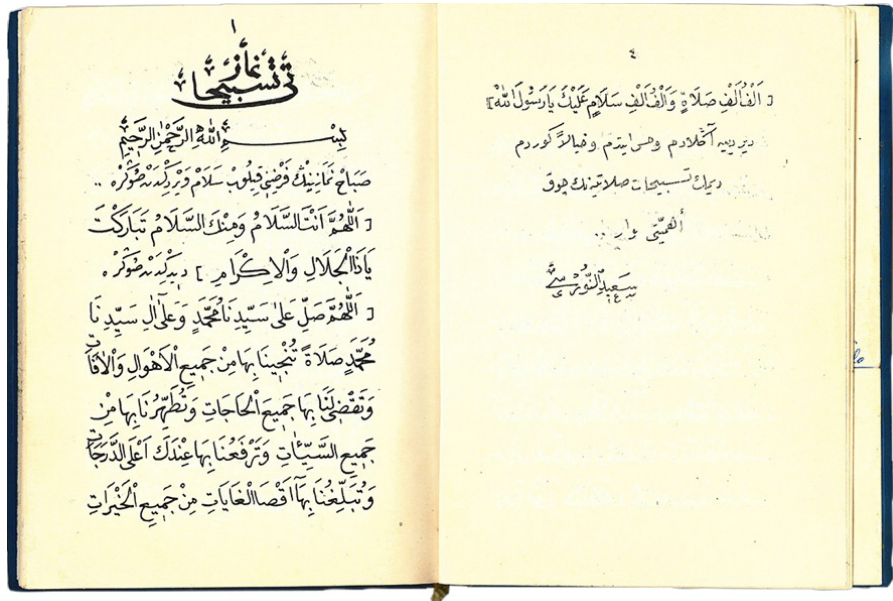 ٤
[ اَلْفُ اَلْفِ صَلَاةٍ وَاَلْفُ اَلْفِ سَلَامٍ عَلَيْكَ يَا رَسُولَ اللّٰهْ ]
دیر دییه آڭلادم وحس ایتدم وخیالاً کوردم
دیمك تسبیحات صلاتیه نك چوق
أهمیتی وار ..
سَعِيدُ النُّورْسِي
١
نماز
تسبيحاتى
بِسْمِ اللّٰهِ الرَّحْمٰنِ الرَّحِيمِ
صَبَاحْ نَمَازِينِڭْ فَرْضِنِى قِيلُوبْ سَلَامْ وِيرْدِكْدَنْ صُوڭْرَه ..
[ اَللّٰهُمَّ اَنْتَ السَّلَامُ وَمِنْكَ السَّلَامُ تَبَارَكْتَ
يَاذَا الْجَلَالِ وَالْاِكْرَامِ ] دِيدِكْدَنْ صُوڭْرَه
[ اَللّٰهُمَّ صَلِّ عَلٰى سَيِّدِنَا مُحَمَّدٍ وَعَلٰٓى اٰلِ سَيِّدِنَا
مُحَمَّدٍ صَلَاةً تُنْجِينَا بِهَا مِنْ جَمِيعِ الْاَهْوَالِ وَالْاٰفَاتِ
وَتَقْضِى لَنَا بِهَا جَمِيعَ الْحَاجَاتِ وَتُطَهِّرُنَا بِهَا مِنْ
جَمِيعِ السَّيِّئَاتِ وَتَرْفَعُنَا بِهَا عِنْدَكَ اَعْلَى الدَّرَجَاتِ
وَتُبَلِّغُنَا بِهَٓا اَقْصَا الْغَايَاتِ مِنْ جَمِيعِ الْخَيْرَاتِ